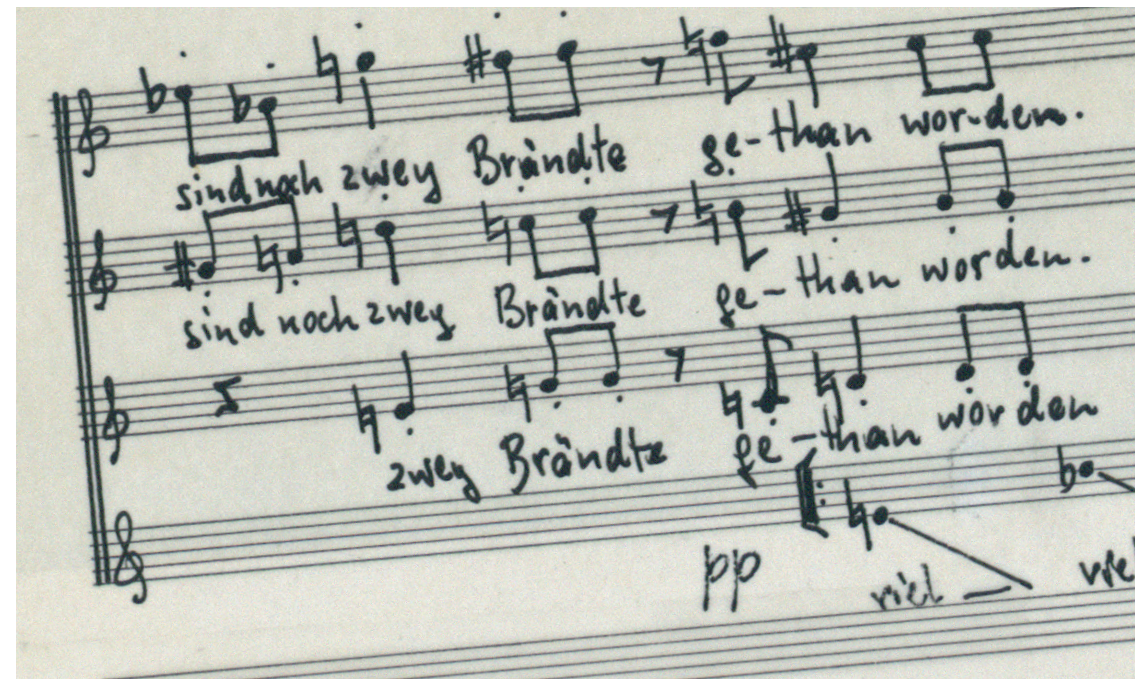 sind noch zwey Brändte ge-than wor-den.
sind noch zwey Brändte ge-than worden.
zwey Brändte ge-than worden
pp viel — viel